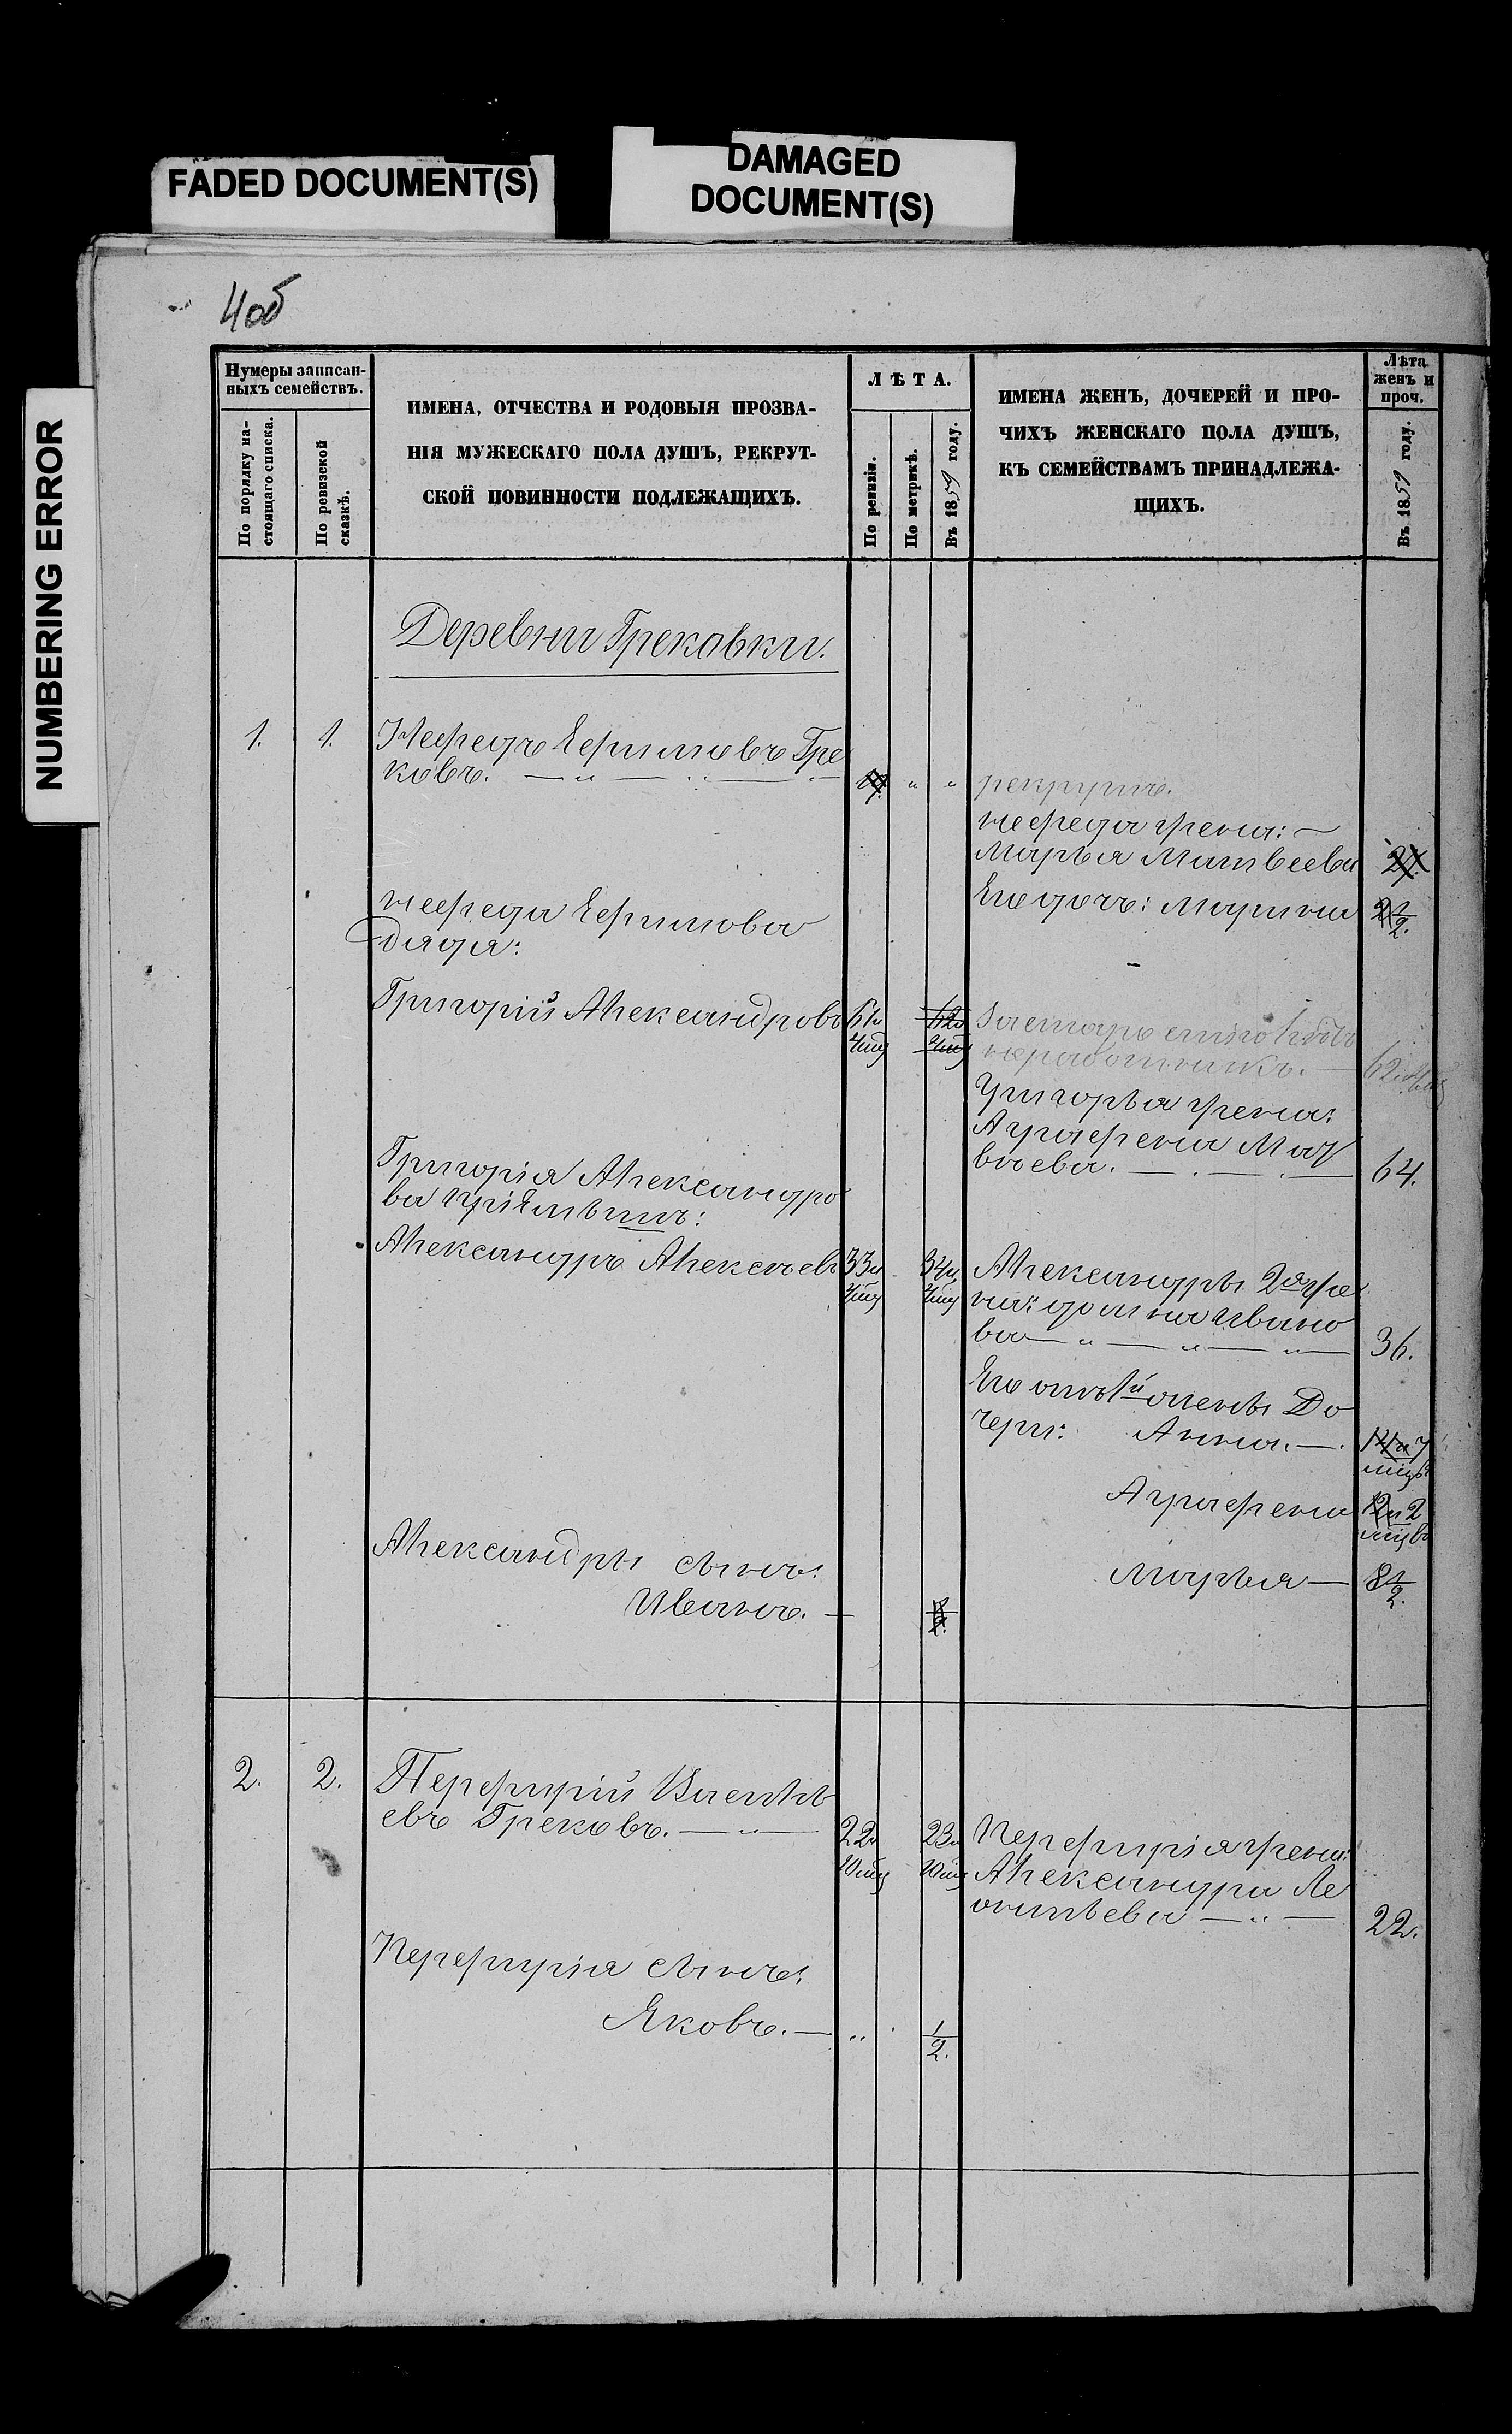 FADED DOCUMENT(S)
DAMAGED
DOCUMENT(S)
NUMBERING ERROR
4об
Нумеры записан-
ныхъ семействъ.
По порядку на-
стоящаго списка.
По ревизской
сказкѣ.
ИМЕНА, ОТЧЕСТВА И РОДОВЫЯ ПРОЗВА-
НІЯ МУЖЕСКАГО ПОЛА ДУШЪ, РЕКРУТ-
СКОЙ ПОВИННОСТИ ПОДЛЕЖАЩИХЪ.
ЛѢТА.
По ревизіи.
По метрикѣ.
Въ 1859 году.
ИМЕНА ЖЕНЪ, ДОЧЕРЕЙ И ПРО-
ЧИХЪ ЖЕНСКАГО ПОЛА ДУШЪ,
КЪ СЕМЕЙСТВАМЪ ПРИНАДЛЕЖА-
ЩИХЪ.
Лѣта
женъ и
проч.
Въ 1859 году.
Деревни Грековки.
1. 1. Нефедъ Ефимовъ Гре
ковъ. " " рекрутъ.
Нефеда жена:
Марья Матвеева
Его дочь: Марина 2 1/2.
Нефеда Ефимова
дядя:
Григорій Александровъ 61 и 62 и
4 мц 4 мц
неработникъ.
Григорья жена:
Аграфена Мат
вѣева. 64.
Григорія Александро
ва пріемышъ:
Александръ Алексѣевъ 33 и 34 и Александры 2я же
4 мц 4 мц на: Домна Ивано
ва 36.
Его отъ 1й жены До
чери: Анна. 14 и 7
мцъ
Аграфена 12 и 2
мцъ
Марья 8 1/2.
Александры сынъ:
Иванъ.
2. 2. Перфирій Василь
евъ Грековъ. 22 и 23 и Перфирія жена:
10 мц 10 мц Александра Ле
онтьева 22.
Перфирія сынъ:
Яковъ. " 1/2.